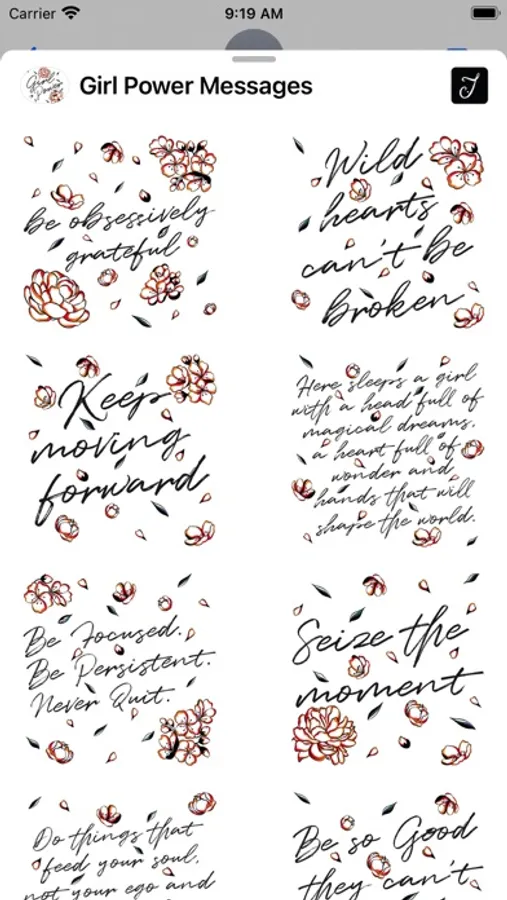 Carrier 9:19 AM
Girl Power
Girl Power Messages
J
Be obsessively
grateful
Wild
hearts
can't be
broken
Keep
moving
forward
Here sleeps a girl
with a head full of
magical dreams,
a heart full of
wonder and
hands that will
shape the world.
Be Focused.
Be Persistent.
Never Quit.
Seize the
moment
Do things that
feed your soul,
not your ego and
Be so Good
they can't